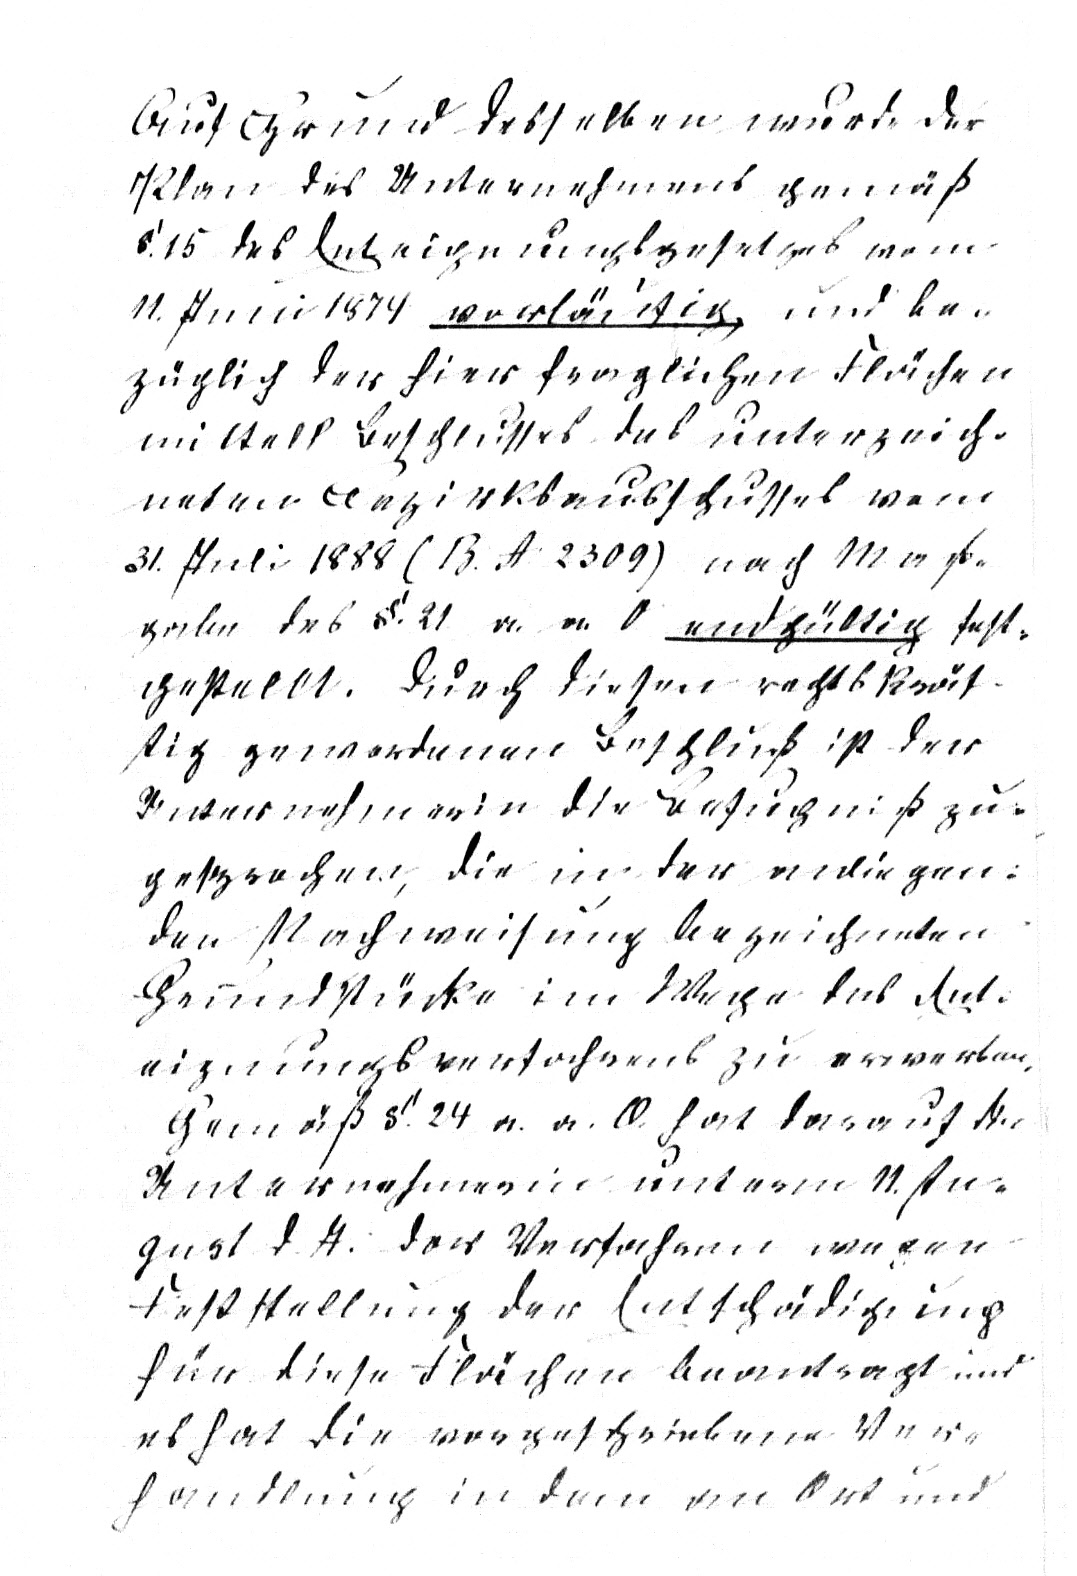 Auf Grund desselben wurde der
Plan des Unternehmens gemäß
§. 15 des Enteignungsgesetzes vom
11. Juni 1874 vorläufig, und be-
züglich der hier fraglichen Flächen
mittelst Beschlusses des unterzeich-
neten Bezirksausschusses vom
31. Juli 1888 (B. A 2309) nach Maß-
gabe des §. 21 a. a. O endgültig fest-
gestellt. Durch diesen rechtskräf-
tig gewordenen Beschluß ist der
Unternehmerin die Befugniß zu-
gesprochen, die in der anliegen-
den Nachweisung bezeichneten
Grundstücke im Wege des Ent-
eignungsverfahrens zu erwerben.
Gemäß §. 24 a. a. O. hat darauf die
Unternehmerin unterm 11. Au-
gust d. J. das Verfahren wegen
Feststellung der Entschädigung
für diese Flächen beantragt und
es hat die vorgeschriebene Ver-
handlung in dem an Ort und